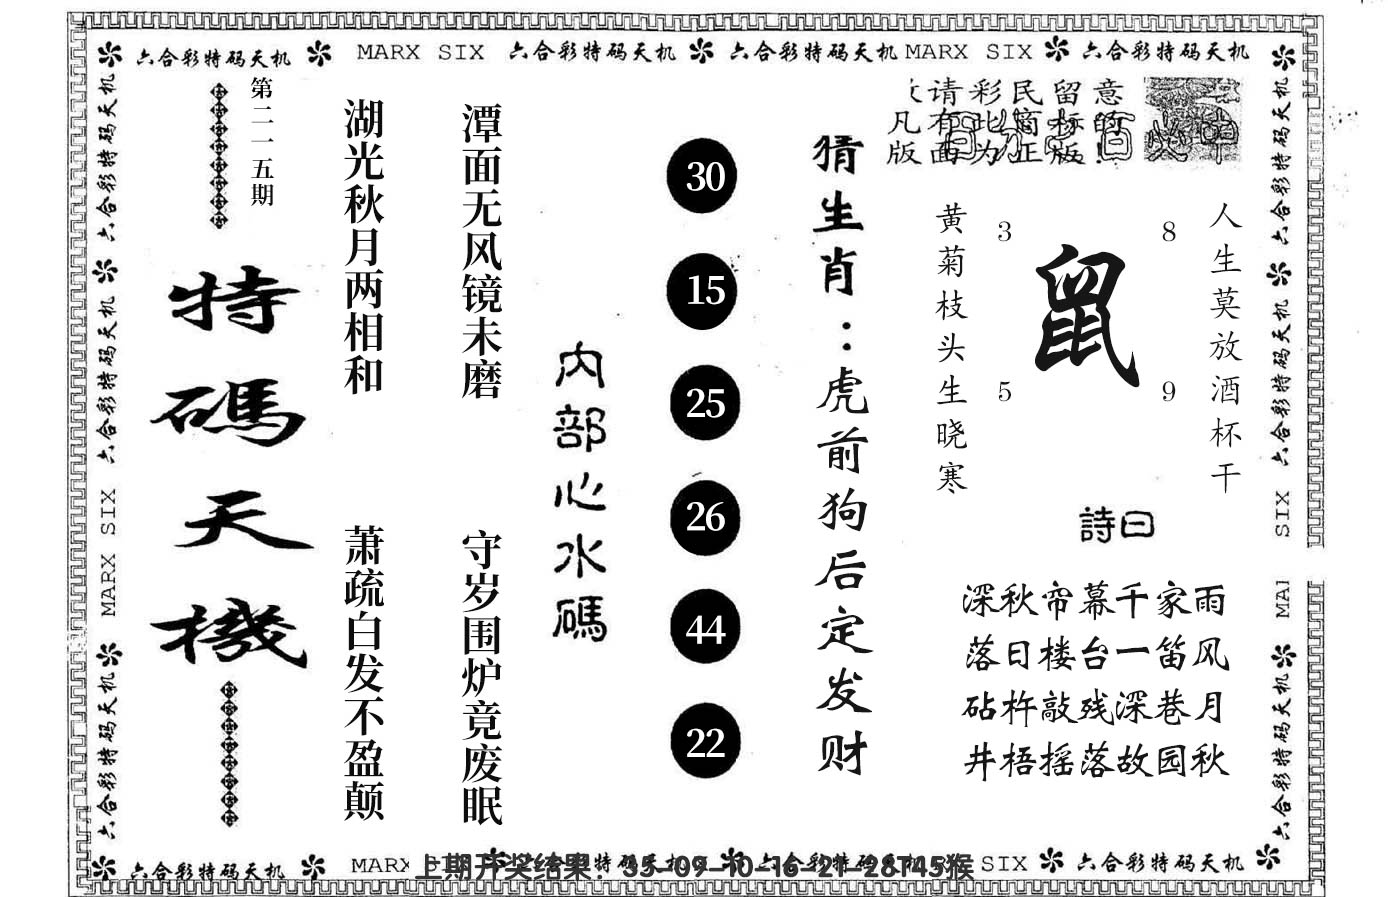 六合彩特码天机 MARX SIX 六合彩特码天机 六合彩特码天机 MARX SIX 六合彩特码天机
第二一一五期
特碼天機
湖光秋月两相和
潭面无风镜未磨
萧疏白发不盈颠
守岁围炉竟废眠
内部心水碼
30
15
25
26
44
22
猜生肖：虎前狗后定发财
请彩民留意
凡有此商标的
版面为正版!
黄菊枝头生晓寒
3
8
鼠
5
9
人生莫放酒杯干
詩曰
深秋帘幕千家雨
落日楼台一笛风
砧杵敲残深巷月
井梧摇落故园秋
六合彩特码天机
六合彩特码天机
MARX SIX
六合彩特码天机
六合彩特码天机
六合彩特码天机
SIX
MA
六合彩特码天机
六合彩特码天机 MARX 六合彩特码天机 SIX 六合彩特码天机
上期开奖结果：35-09-10-16-21-28T45猴